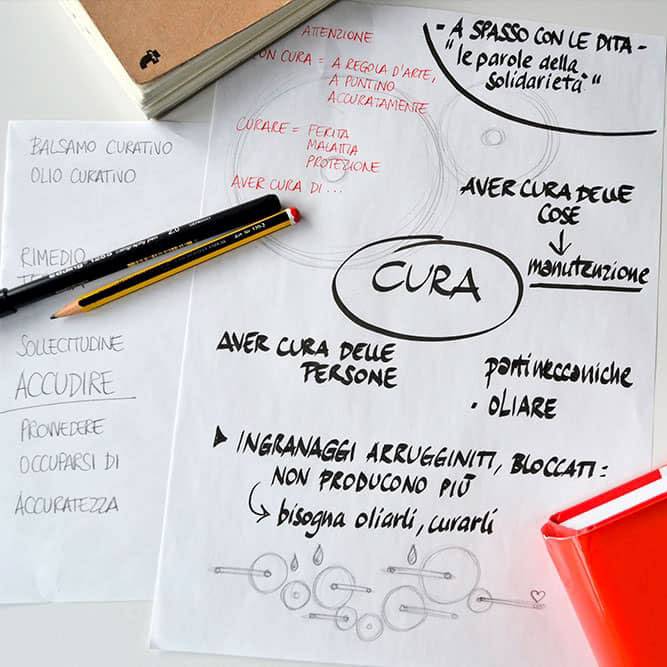 ATTENZIONE
CON CURA = A REGOLA D'ARTE,
A PUNTINO
ACCURATAMENTE
CURARE = FERITA
MALATTIA
PROTEZIONE
AVER CURA DI...
- A SPASSO CON LE DITA -
"le parole della
solidarietà"
AVER CURA DELLE
COSE
manutenzione
CURA
AVER CURA DELLE
PERSONE
parti meccaniche
• OLIARE
INGRANAGGI ARRUGGINITI, BLOCCATI =
NON PRODUCONO PIÙ
bisogna oliarli, curarli
BALSAMO CURATIVO
OLIO CURATIVO
RIMEDIO
SOLLECITUDINE
ACCUDIRE
PROVVEDERE
OCCUPARSI DI
ACCURATEZZA
2.0